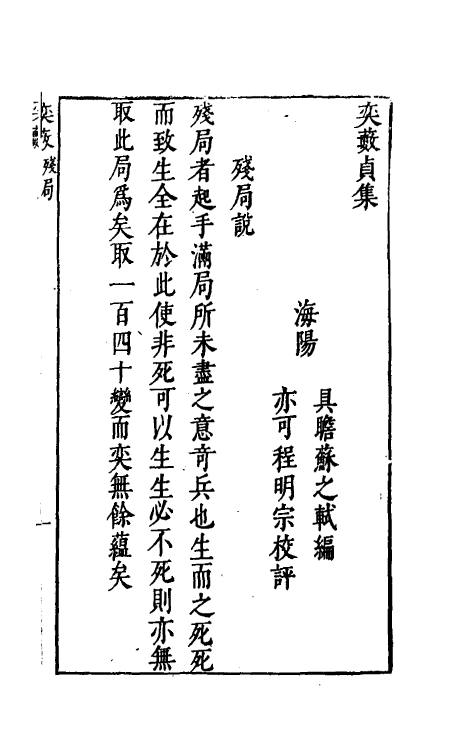 奕藪貞集
海陽
具瞻蘇之軾編
亦可程明宗校評
殘局說
殘局者起手滿局所未盡之意奇兵也生而之死死
而致生全在於此使非死可以生生必不死則亦無
取此局爲矣取一百四十變而奕無餘蘊矣
奕藪 殘局
一